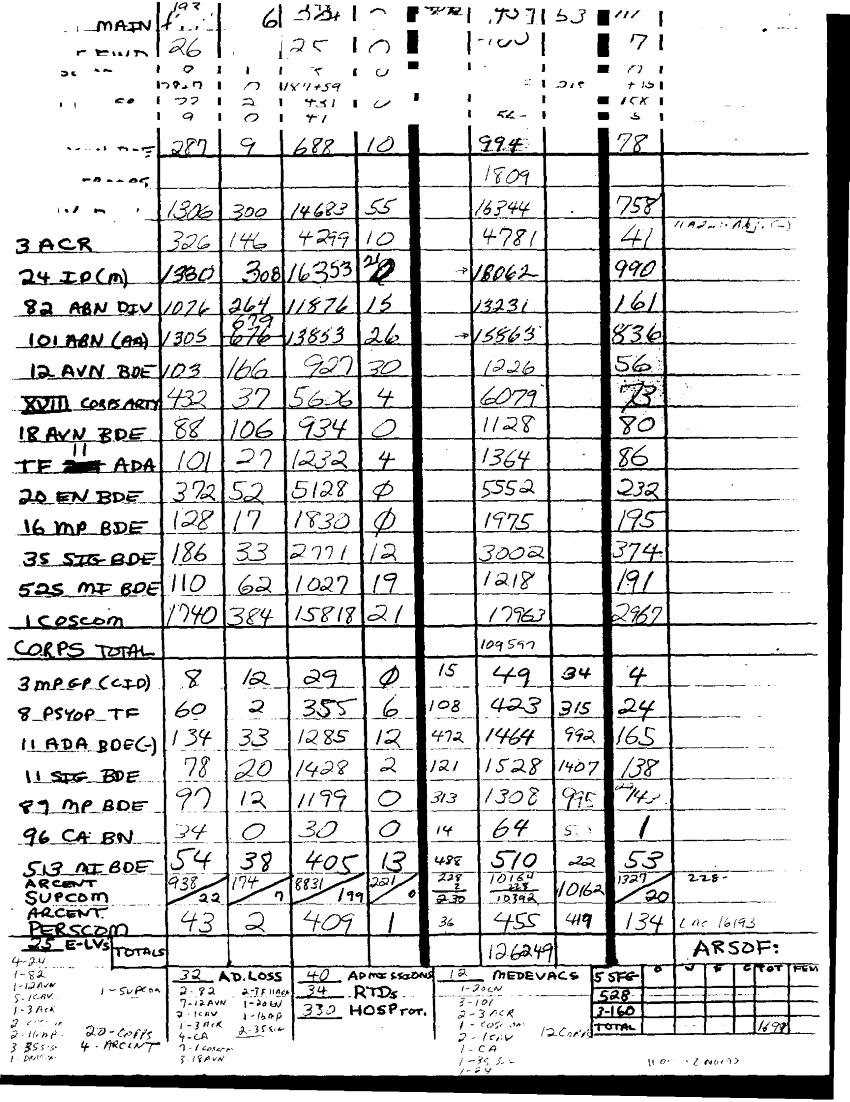 193
MAIN 6 0 53 111
26 25 0 7
0 1 5 0
0 187+59 +15
22 2 431 0
9 0 41
287 9 688 10 994 78
1809
1306 300 14683 55 16344 758
3 ACR 326 146 4299 10 4781 41
24 ID(M) 1380 308 16353 →18062 990
82 ABN DIV 1076 264 11876 15 13231 161
879
101 ABN (AA) 1305 676 13853 26 →15863 836
12 AVN BDE 103 166 927 30 1226 56
XVIII CORPS ARTY 432 37 5606 4 6079 73
18 AVN BDE 88 106 934 0 1128 80
11
TF ADA 101 27 1232 4 1364 86
20 EN BDE 372 52 5128 Ø 5552 232
16 MP BDE 128 17 1830 Ø 1975 195
35 SIG BDE 186 33 2771 12 3002 374
525 MI BDE 110 62 1027 19 1218 191
1 COSCOM 1740 384 15818 21 17963 2967
CORPS TOTAL 109597
3 MP GP (CID) 8 12 29 Ø 15 49 34 4
8 PSYOP TF 60 2 355 6 108 423 315 24
11 ADA BDE(-) 134 33 1285 12 472 1464 992 165
11 SIG BDE 78 20 1428 2 121 1528 1407 138
89 MP BDE 97 12 1199 0 313 1308 995 143
96 CA BN 34 0 30 0 14 64 1
513 MI BDE 54 38 405 13 488 510 22 53
ARCENT 938 174 8831 221 228 10164 1327 228-
SUPCOM 22 7 199 0 2 228 10162 20
230 10392
ARCENT
PERSCOM 43 2 409 1 36 455 419 134 16193
25 E-LVs TOTALS 126249 ARSOF:
4-24 32 AD.LOSS 40 ADMISSIONS 12 MEDEVACS 5 SFG O W E C TOT FEM
1-82 2-82 34 RTDs 1-20EN 528
1-12AVN 1-SUPCOM 7-12AVN 1-20EN 330 HOSP TOT. 3-101 3-160
5-1CAV 2-1CAV 1-16MP 2-3ACR TOTAL 1698
1-3ACR 1-3ACR 2-35SIG 1-COSCOM 12CORPS
20-CORPS 4-CA 2-1CAV
2-16MP 4-ARCENT 7-1COSCOM 1-CA
3-35SIG 3-18AVN 1-35SIG
1-24